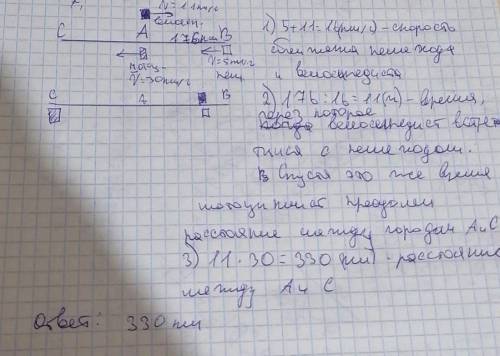 V=11км/ч
велос.
C A 176км B
мотоц. V=5км/ч
V=30км/ч пеш.
C A B
1) 5+11=16(км/ч) - скорость
сближения пешехода
и велосипедиста
2) 176:16=11(ч) - время,
через которое
велосипедист встре-
тится с пешеходом.
Спустя это же время
мотоциклист преодолел
расстояние между городами A и C
3) 11·30=330(км) - расстояние
между A и C
Ответ: 330 км